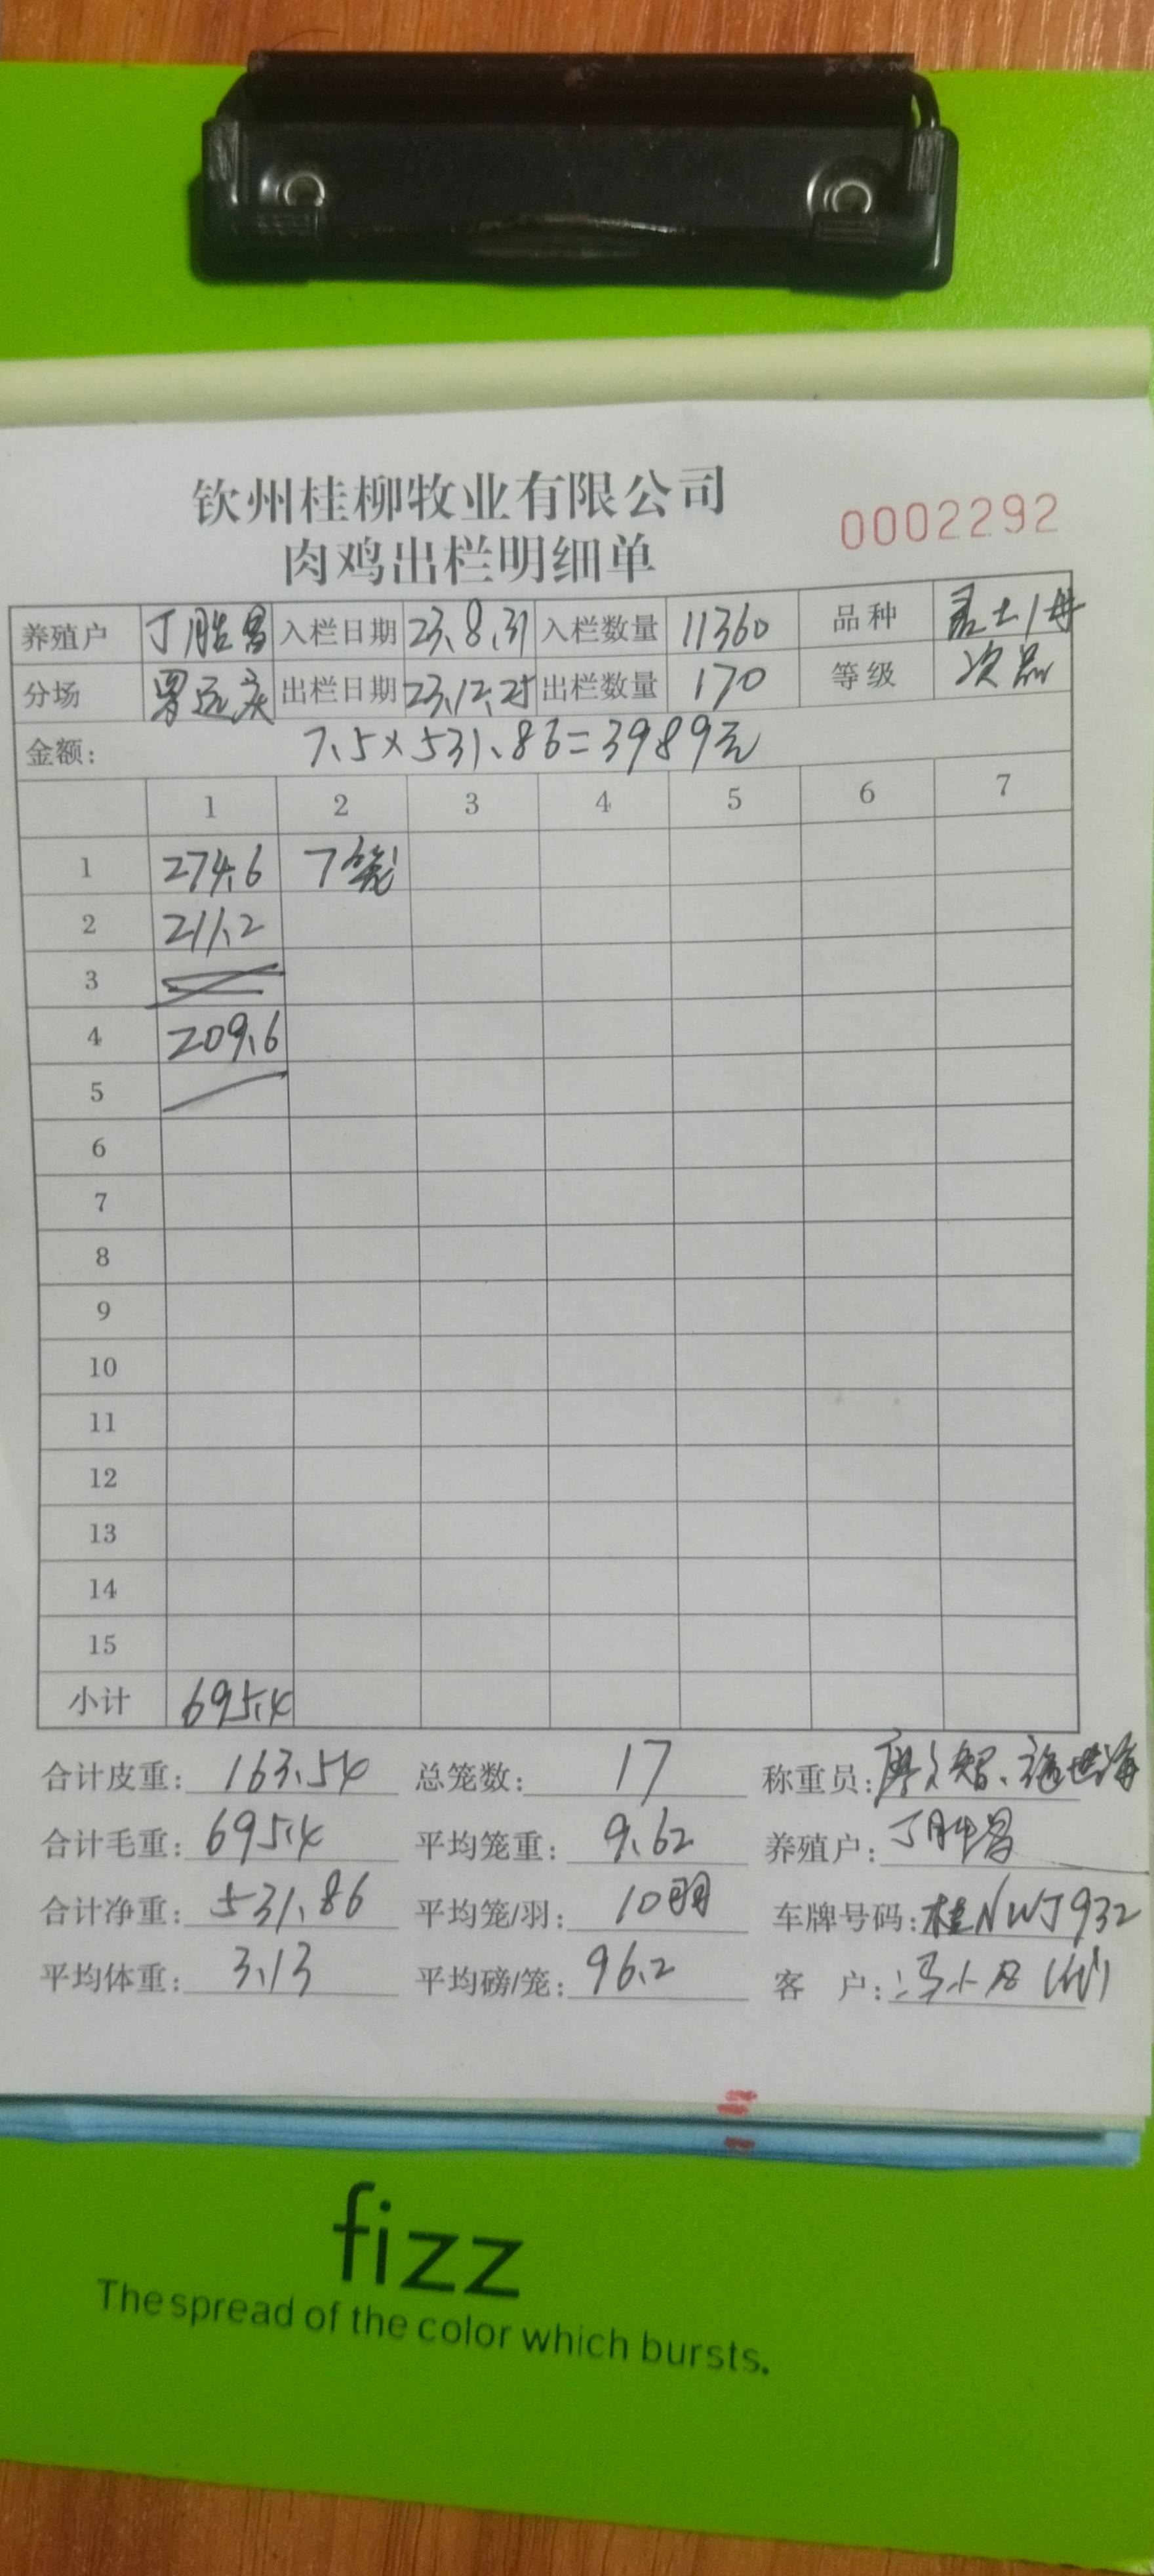 钦州桂柳牧业有限公司
0002292
肉鸡出栏明细单
养殖户 丁胜昌 入栏日期 23.8.31 入栏数量 11360 品种 土1母
分场 罗远庆 出栏日期 23.12.25 出栏数量 170 等级 次品
金额: 7.5×531.86=3989元
1 2 3 4 5 6 7
1 274.6 7笼
2 211.2
3
4 209.6
5
6
7
8
9
10
11
12
13
14
15
小计 695.4
合计皮重: 163.54 总笼数: 17 称重员: 智、海
合计毛重: 695.4 平均笼重: 9.62 养殖户: 丁胜昌
合计净重: 531.86 平均笼/羽: 10羽 车牌号码: 桂NWJ932
平均体重: 3.13 平均磅/笼: 96.2 客 户: 冯小(代)
fizz
The spread of the color which bursts.